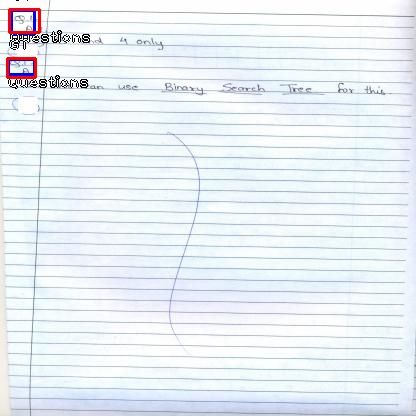 Questions
nd 4 only
GT
Questions
an use Binary Search Tree for this